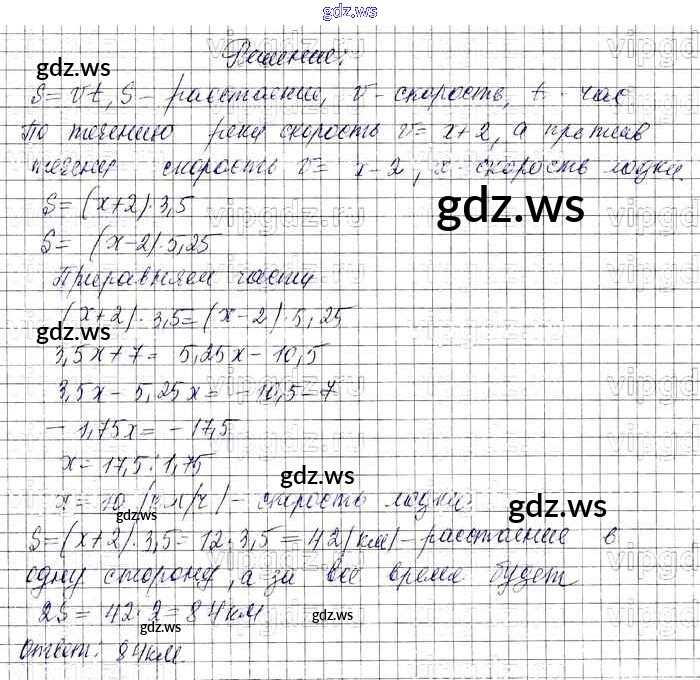 gdz.ws
Решение:
S = Vt, S - расстояние, V - скорость, t - час
По течению реки скорость V = x+2, а против
течения скорость V = x-2, x - скорость лодки.
S = (x+2)·3,5
S = (x-2)·5,25
Приравняем части
(x+2)·3,5 = (x-2)·5,25
3,5x + 7 = 5,25x - 10,5
3,5x - 5,25x = -10,5-7
- 1,75x = - 17,5
x = 17,5 : 1,75
x = 10 (км/ч) - скорость лодки.
S = (x+2)·3,5 = 12·3,5 = 42 (км) - расстояние в
одну сторону, а за все время будет
2S = 42·2 = 84 км
Ответ: 84 км.
gdz.ws
gdz.ws
gdz.ws
gdz.ws
gdz.ws
gdz.ws
gdz.ws
gdz.ws
gdz.ws
gdz.ws